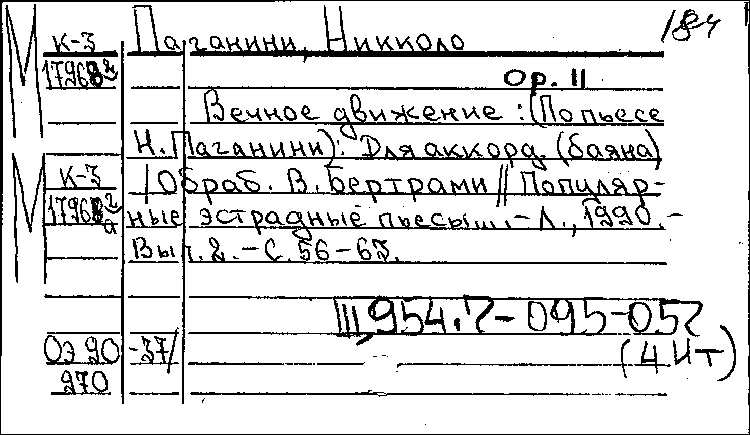 М К-3 Паганини, Никколо 184
Ор. 11
Вечное движение : (По пьесе
Н. Паганини): Для аккорд. (баяна)
М К-3 / Обраб. В. Бертрами // Популяр-
ные эстрадные пьесы... .- Л., 1990.-
Вып. 2. - С. 56-63.
III, 954.7- 095-052
(4 Ит)
ОЭ 90 -37/
270